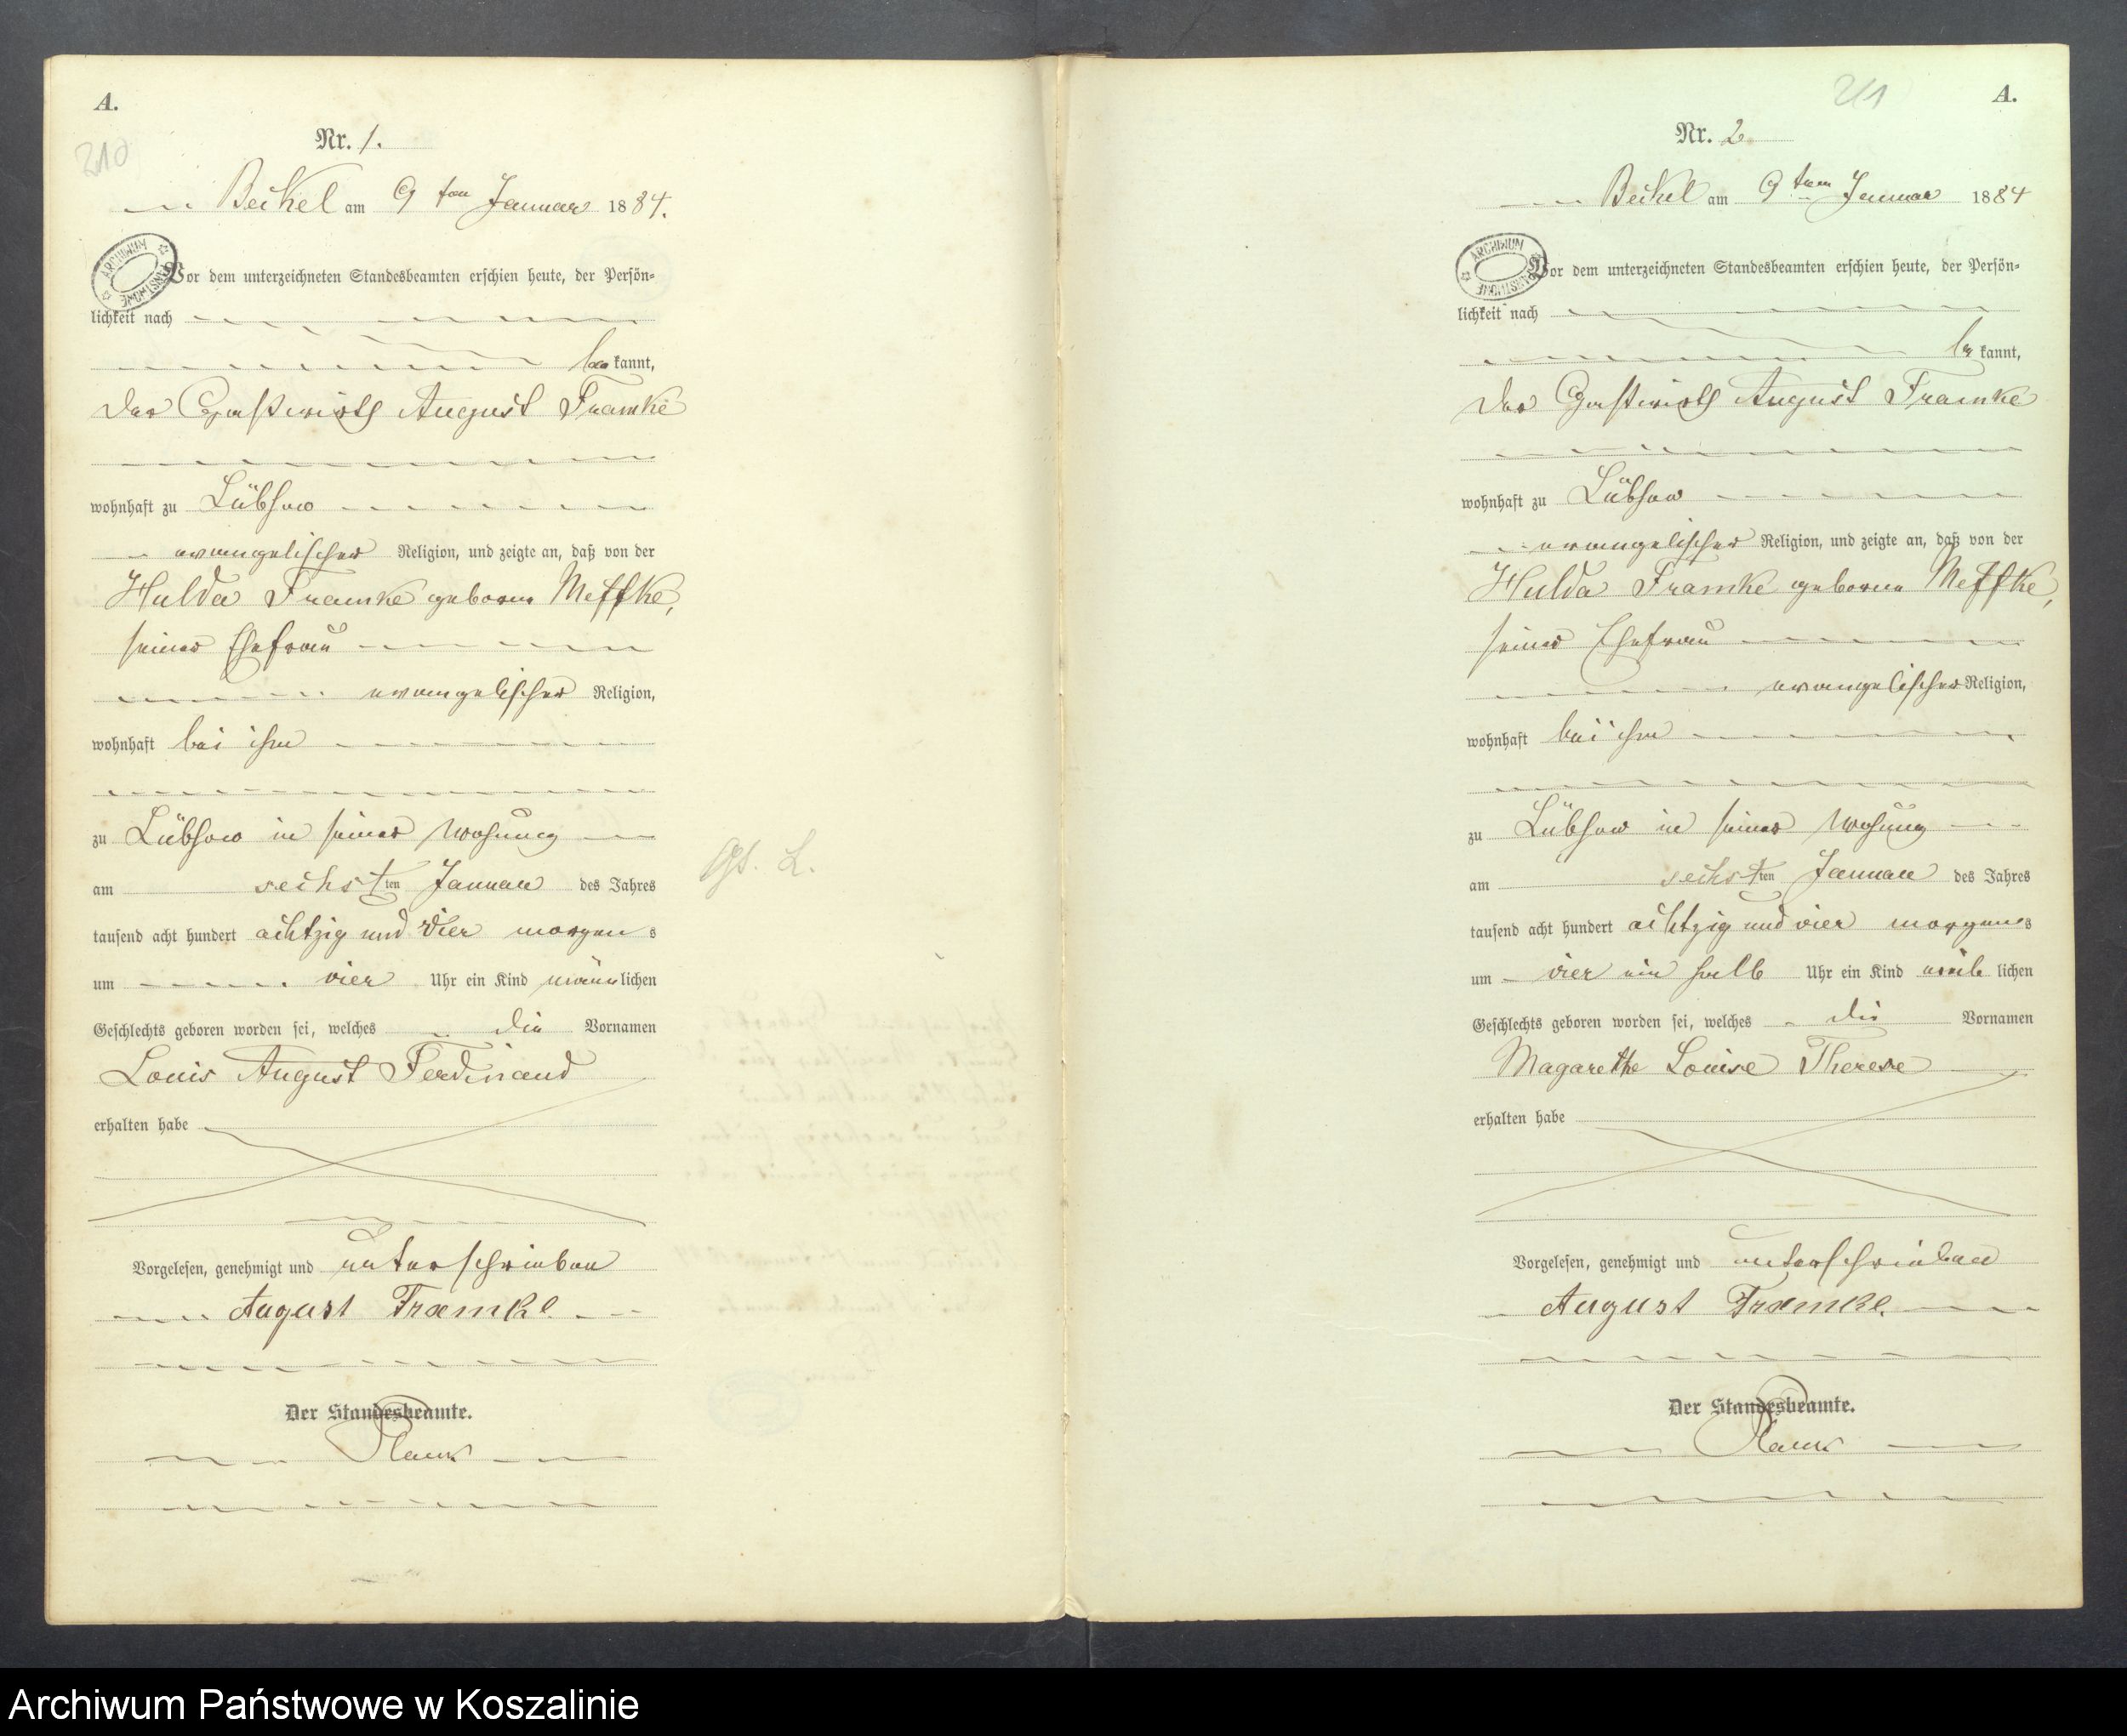 A.
210
Nr. 1.
Beckel am 9 ten Januar 1884.
ARCHIWUM
Vor dem unterzeichneten Standesbeamten erschien heute, der Persön=
lichkeit nach
be kannt,
der Gastwirth August Framke
wohnhaft zu Lübsow
evangelischer Religion, und zeigte an, daß von der
Hulda Framke geborne Meffke,
seiner Ehefrau
evangelischer Religion,
wohnhaft bei ihm
zu Lübsow in seiner Wohnung
am sechsten Januar des Jahres
tausend acht hundert achtzig und vier morgens
um vier Uhr ein Kind männlichen
Geschlechts geboren worden sei, welches die Vornamen
Louis August Ferdinand
erhalten habe
Vorgelesen, genehmigt und unterschrieben
August Træmke.
Der Standesbeamte.
L.
211
A.
Nr. 2
Beckel am 9 ten Januar 1884
ARCHIWUM
Vor dem unterzeichneten Standesbeamten erschien heute, der Persön=
lichkeit nach
be kannt,
der Gastwirth August Framke
wohnhaft zu Lübsow
evangelischer Religion, und zeigte an, daß von der
Hulda Framke geborne Meffke,
seiner Ehefrau
evangelischer Religion,
wohnhaft bei ihm
zu Lübsow in seiner Wohnung
am sechsten Januar des Jahres
tausend acht hundert achtzig und vier morgens
um vier ein halb Uhr ein Kind weib lichen
Geschlechts geboren worden sei, welches die Vornamen
Magarethe Louise Therese
erhalten habe
Vorgelesen, genehmigt und unterschrieben
August Træmke.
Der Standesbeamte.
Archiwum Państwowe w Koszalinie